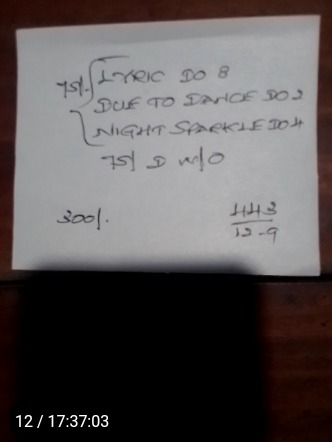 75/. LYRIC DO 8
DUE TO DANCE DO 2
NIGHT SPARKLE DO 4
75/ D W/O
300/. 443
12-9
12 / 17:37:03